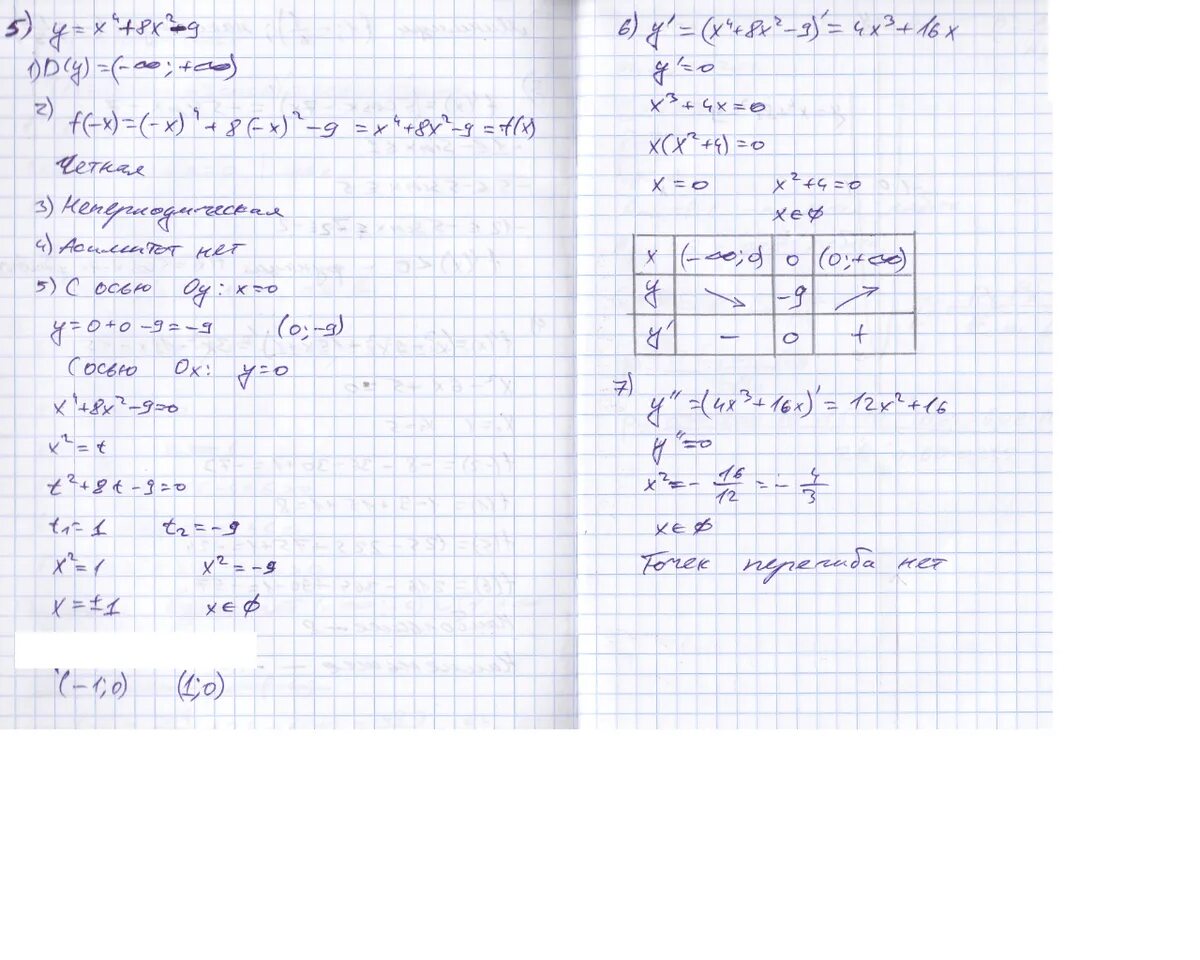 5) y = x⁴+8x²-9
1) D(y) = (-∞; +∞)
2) f(-x) = (-x)⁴ + 8(-x)² - 9 = x⁴+8x²-9 = f(x)
Четная
3) Непериодическая
4) Асимптот нет
5) С осью Oy: x=0
y = 0+0-9 = -9 (0; -9)
С осью Ox: y=0
x⁴+8x²-9=0
x² = t
t²+8t-9=0
t₁=1 t₂=-9
x²=1 x²=-9
x=±1 x∈∅
(-1;0) (1;0)
6) y' = (x⁴+8x²-9)' = 4x³+16x
y'=0
x³+4x=0
x(x²+4)=0
x=0 x²+4=0
x∈∅
x (-∞;0) 0 (0;+∞)
y ↘ -9 ↗
y' - 0 +
7) y'' = (4x³+16x)' = 12x²+16
y''=0
x² = - 16/12 = - 4/3
x∈∅
Точек перегиба нет